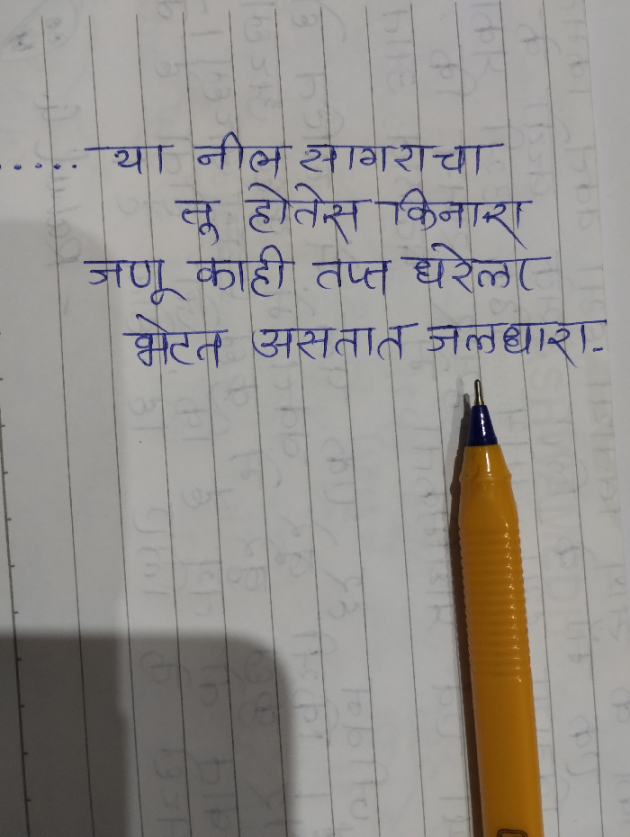 ..... या नील सागराचा
तू होतेस किनारा
जणू काही तप्त धरेला
भेटत असतात जलधारा.